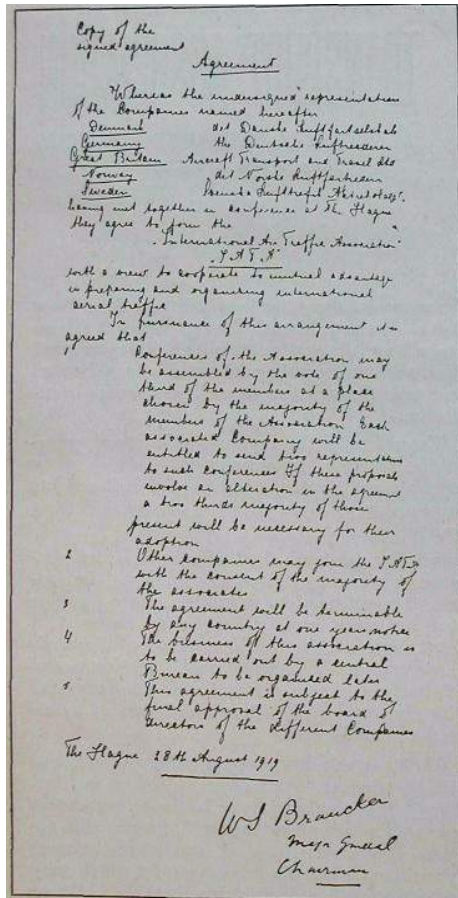 Copy of the
signed agreement
Agreement
"Whereas the undersigned representatives
of the Companies named hereafter
Denmark det Danske Luftfartselskab
Germany the Deutsche Luftreederei
Great Britain Aircraft Transport and Travel Ltd
Norway det Norske Luftfartrederi
Sweden Svenska Lufttrafik
having met together in conference at The Hague
they agree to form the
"International Air Traffic Association"
"I.A.T.A"
with a view to cooperate to mutual advantage
in preparing and organising international
aerial traffic
In pursuance of this arrangement it is
agreed that
1 Conferences of the Association may
be assembled by the vote of one
third of the members at a place
chosen by the majority of the
members of the Association Each
associated Company will be
entitled to send two representatives
to such conferences If these proposals
involve an alteration in the agreement
a two thirds majority of those
present will be necessary for their
adoption
2 Other companies may join the I.A.T.A
with the consent of the majority of
the associates
3 The agreement will be terminable
by any country at one years notice
4 The business of this association is
to be carried out by a central
Bureau to be organised later
5 This agreement is subject to the
final approval of the board of
directors of the different Companies
The Hague 28th August 1919
WS Brancker
Major General
Chairman